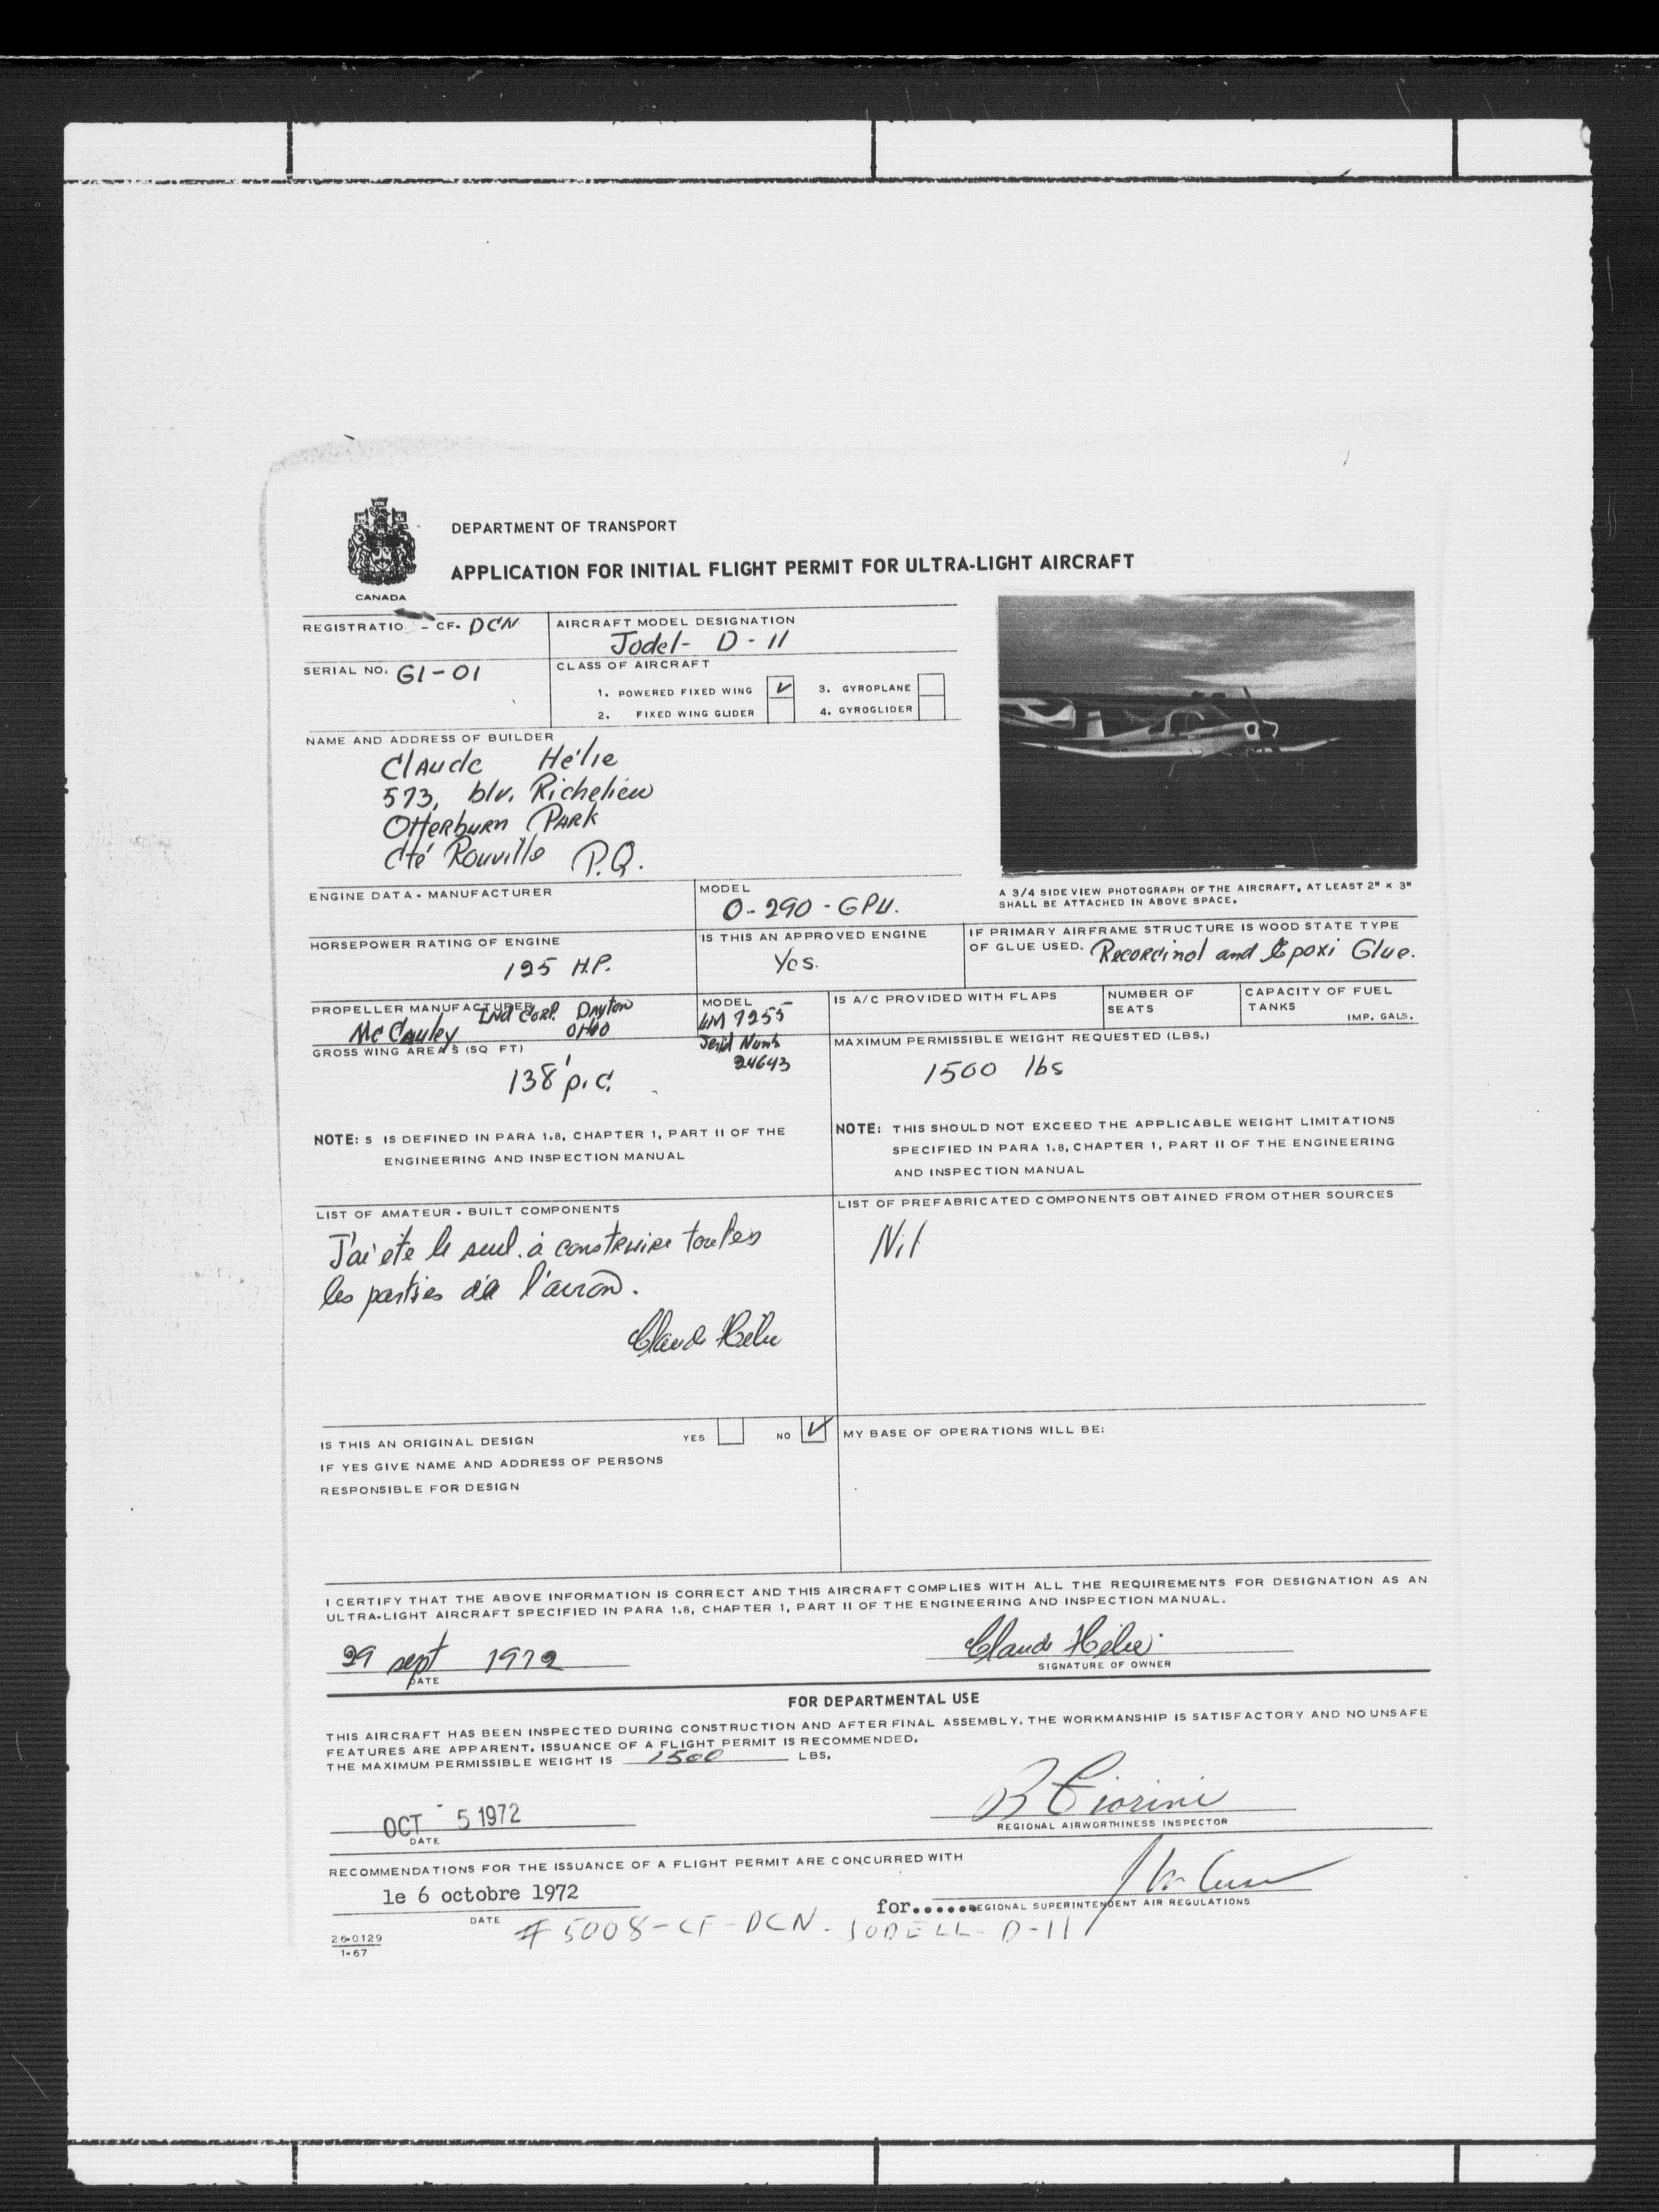 DEPARTMENT OF TRANSPORT
APPLICATION FOR INITIAL FLIGHT PERMIT FOR ULTRA-LIGHT AIRCRAFT
CANADA
REGISTRATIO - CF- DCN
AIRCRAFT MODEL DESIGNATION
Jodel- D-11
SERIAL NO. G1-01
CLASS OF AIRCRAFT
1. POWERED FIXED WING ✓ 3. GYROPLANE
2. FIXED WING GLIDER 4. GYROGLIDER
NAME AND ADDRESS OF BUILDER
Claude Hélie
573, blv. Richelieu
Otterburn Park
Cté Rouville P.Q.
A 3/4 SIDE VIEW PHOTOGRAPH OF THE AIRCRAFT, AT LEAST 2" X 3"
SHALL BE ATTACHED IN ABOVE SPACE.
ENGINE DATA - MANUFACTURER
MODEL
O-290-GPU.
HORSEPOWER RATING OF ENGINE
125 H.P.
IS THIS AN APPROVED ENGINE
Yes.
IF PRIMARY AIRFRAME STRUCTURE IS WOOD STATE TYPE
OF GLUE USED. Recorcinol and Epoxi Glue.
PROPELLER MANUFACTURER
McCauley Ind Corp. Dayton
OHIO
MODEL
7255
Serial Numb
24643
IS A/C PROVIDED WITH FLAPS
NUMBER OF
SEATS
CAPACITY OF FUEL
TANKS
IMP. GALS.
GROSS WING AREA S (SQ FT)
138 p.c.
MAXIMUM PERMISSIBLE WEIGHT REQUESTED (LBS.)
1500 lbs
NOTE: S IS DEFINED IN PARA 1.8, CHAPTER 1, PART II OF THE
ENGINEERING AND INSPECTION MANUAL
NOTE: THIS SHOULD NOT EXCEED THE APPLICABLE WEIGHT LIMITATIONS
SPECIFIED IN PARA 1.8, CHAPTER 1, PART II OF THE ENGINEERING
AND INSPECTION MANUAL
LIST OF AMATEUR - BUILT COMPONENTS
J'ai été le seul à construire toutes
les parties de l'avion.
Claude Hélie
LIST OF PREFABRICATED COMPONENTS OBTAINED FROM OTHER SOURCES
Nil
IS THIS AN ORIGINAL DESIGN YES NO ✓
IF YES GIVE NAME AND ADDRESS OF PERSONS
RESPONSIBLE FOR DESIGN
MY BASE OF OPERATIONS WILL BE:
I CERTIFY THAT THE ABOVE INFORMATION IS CORRECT AND THIS AIRCRAFT COMPLIES WITH ALL THE REQUIREMENTS FOR DESIGNATION AS AN
ULTRA-LIGHT AIRCRAFT SPECIFIED IN PARA 1.8, CHAPTER 1, PART II OF THE ENGINEERING AND INSPECTION MANUAL.
29 sept 1972
DATE
Claude Hélie
SIGNATURE OF OWNER
FOR DEPARTMENTAL USE
THIS AIRCRAFT HAS BEEN INSPECTED DURING CONSTRUCTION AND AFTER FINAL ASSEMBLY. THE WORKMANSHIP IS SATISFACTORY AND NO UNSAFE
FEATURES ARE APPARENT. ISSUANCE OF A FLIGHT PERMIT IS RECOMMENDED.
THE MAXIMUM PERMISSIBLE WEIGHT IS 1500 LBS.
OCT - 5 1972
DATE
B Fiorini
REGIONAL AIRWORTHINESS INSPECTOR
RECOMMENDATIONS FOR THE ISSUANCE OF A FLIGHT PERMIT ARE CONCURRED WITH
le 6 octobre 1972
DATE
for......REGIONAL SUPERINTENDENT AIR REGULATIONS
# 5008-CF-DCN-JODELL-D-11
26-0129
1-67